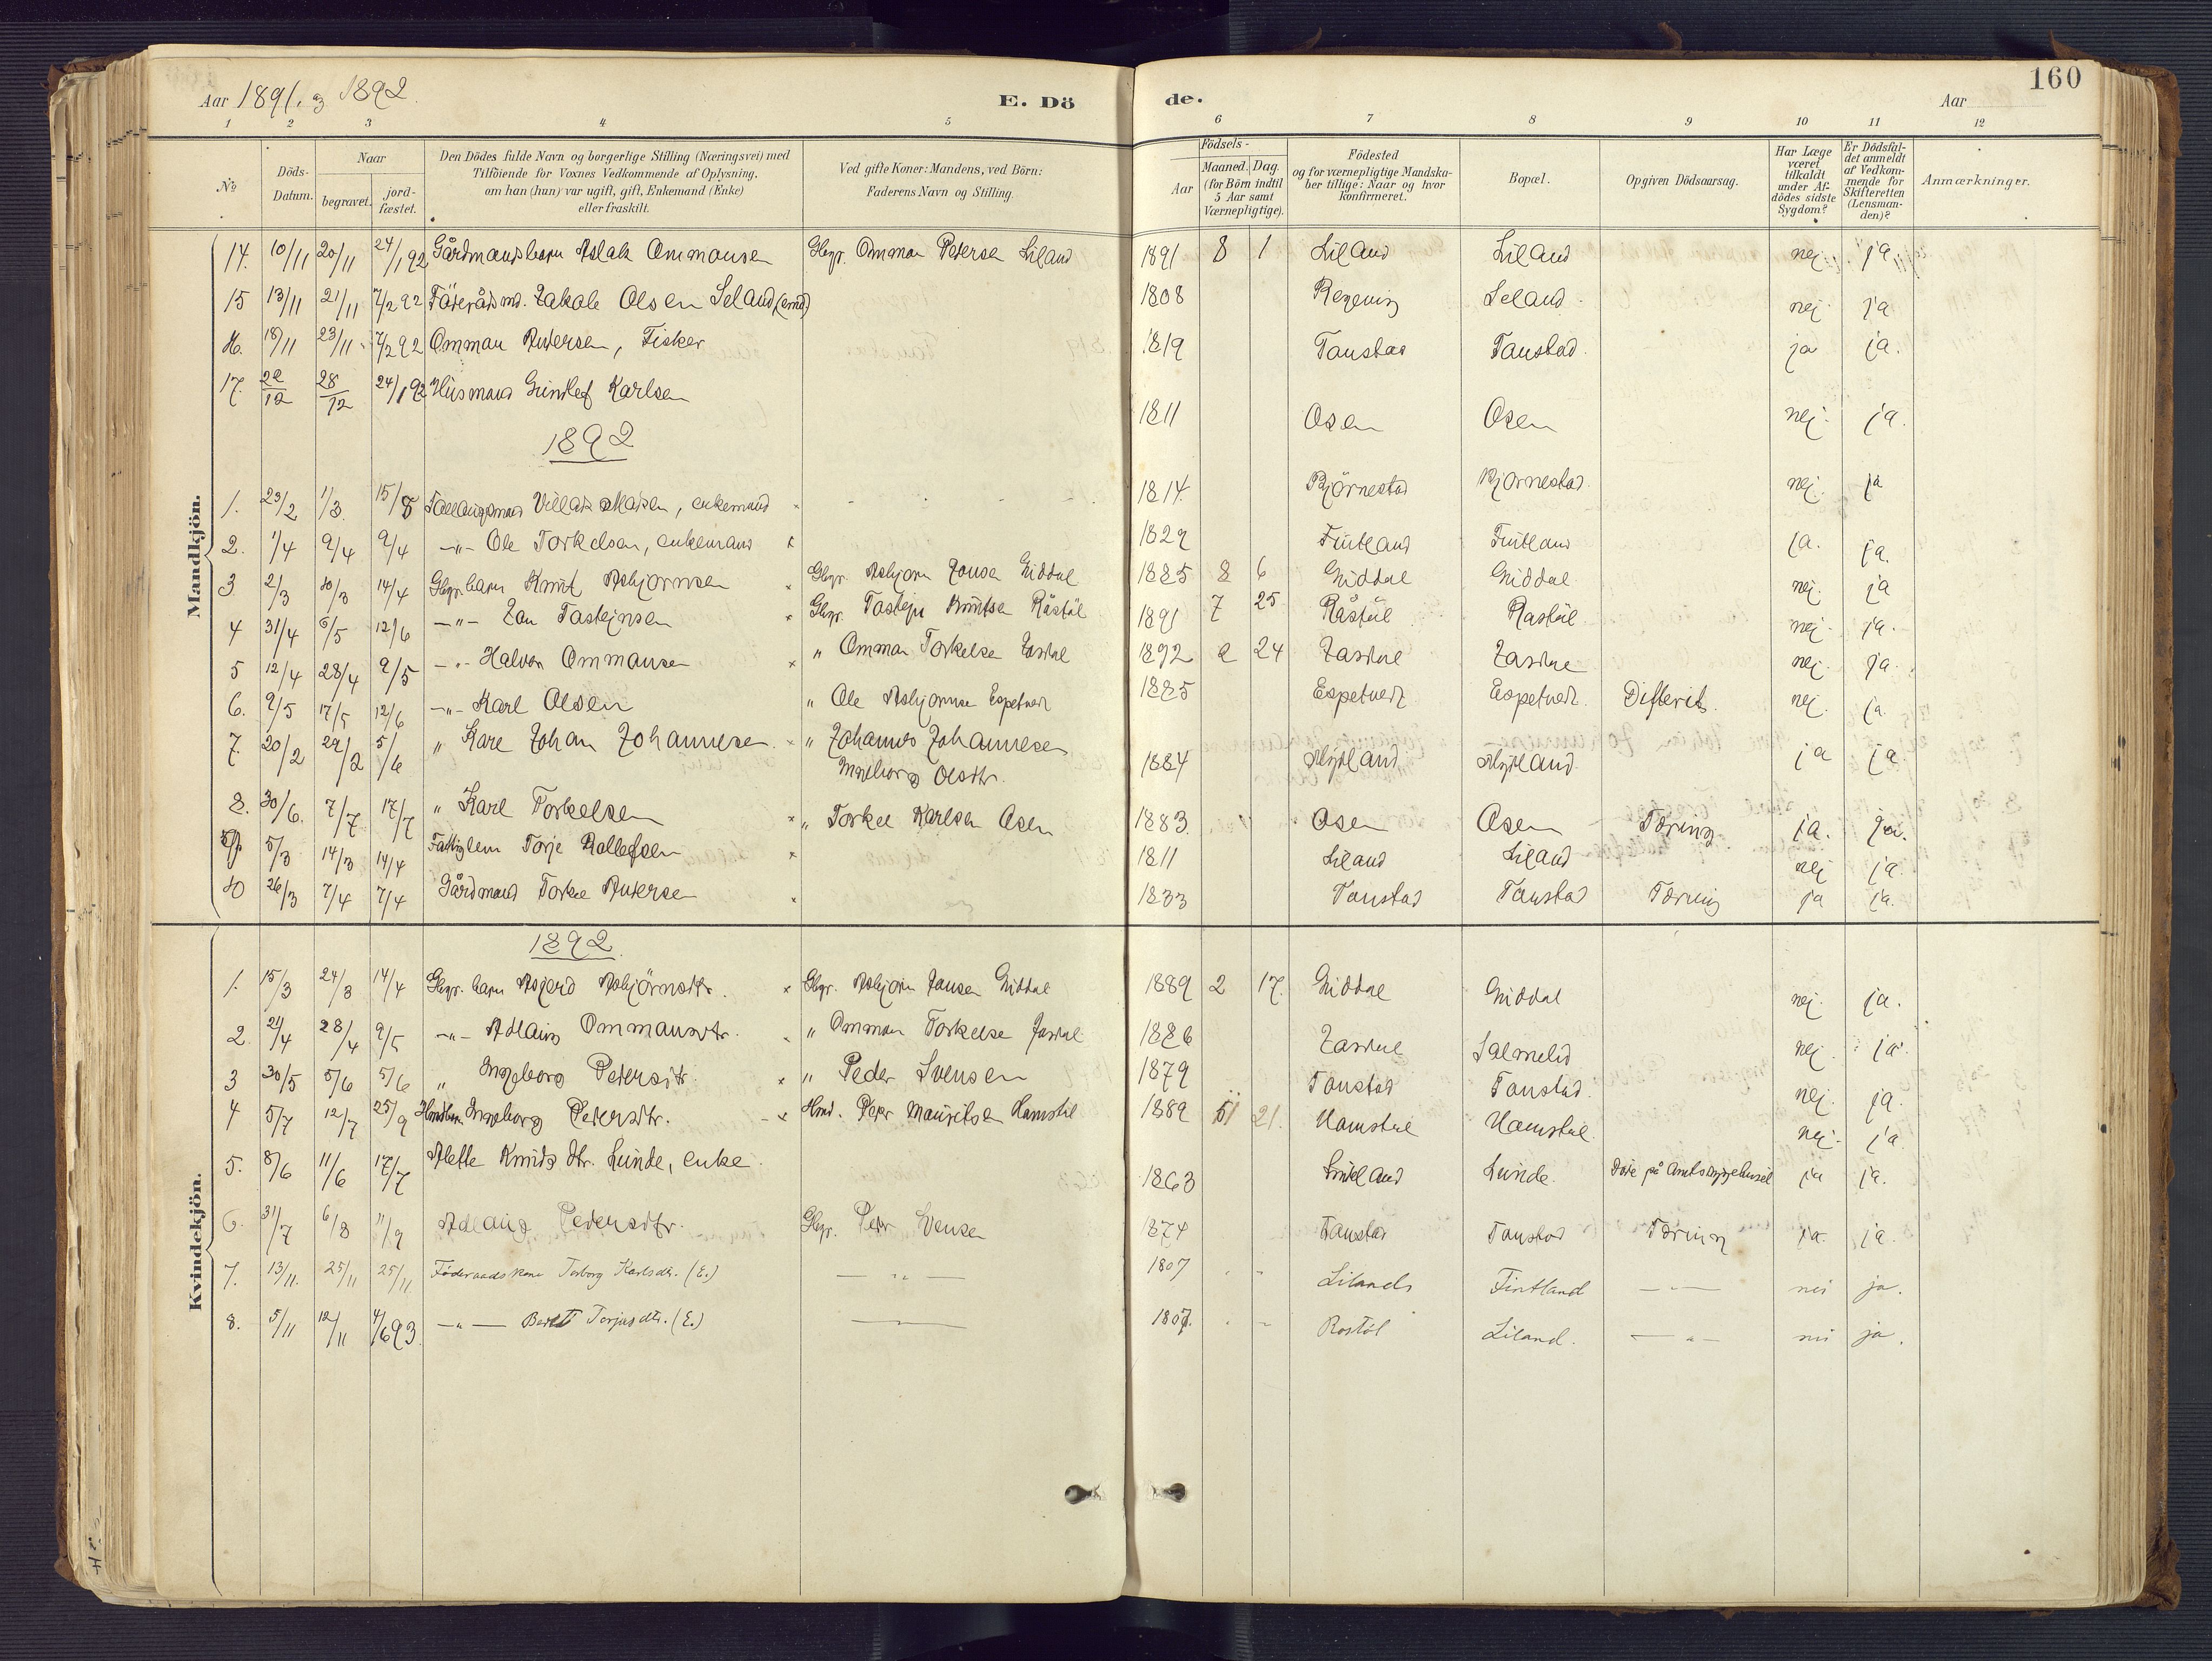 160
Aar 1891. og 1892.
E. Dö de.
Aar
1 2 3 4 5 6 7 8 9 10 11 12
No
Döds-Datum.
Naar
begravet.
jord-fæstet.
Den Dödes fulde Navn og borgerlige Stilling (Næringsvei) med
Tilföiende for Voxnes Vedkommende af Oplysning,
om han (hun) var ugift, gift, Enkemand (Enke)
eller fraskilt.
Ved gifte Koner: Mandens, ved Börn:
Faderens Navn og Stilling.
Födsels-
Aar
Maaned. Dag.
(for Börn indtil
5 Aar samt
Værnepligtige).
Födested
og for værnepligtige Mandska-
ber tillige: Naar og hvor
konfirmeret.
Bopæl.
Opgiven Dödsaarsag.
Har Læge
været
tilkaldt
under Af-
dödes sidste
Sygdom?
Er Dödsfal-
det anmeldt
af Vedkom-
mende for
Skifteretten
(Lensman-
den)?
Anmærkninger.
Mandkjön.
14. 10/11 20/11 24/1 92 Gårdmandsbarn Aslak Ommansen Gbgr. Omman Pedersen Liland 1891 8 1 Liland Liland nej ja
15 13/11 21/11 7/2 92 Olsen Leland 1808 Leland nej ja
16. 18/11 23/11 7/2 92 Omman Andersen, Fisker 1819 Tanstad Tanstad ja ja.
17. 22/12 28/12 24/1 92 Husmand Gundlef Karlsen 1811 Osen Osen nej ja.
1892
1. 23/2 1/3. 15/8 enkemand 1814 Bjørnestad Bjørnestad nej ja
2. 1/4 9/4 9/4 -"- Ole Torkelsen, enkemand 1829 Fintland Fintland ja. ja.
3 2/3 10/3 14/4 Gbgr. barn Knut Asbjørnsen Gbgr. Asbjørn Jonsen Middal 1885 8 6 Middal Middal nej. ja
4 31/4 6/5 12/6 -"- Jan Tastejnsen Gbgr. Tastejn Knutsen Råstöl 1891 7 25 Råstöl Rastöl nej. ja.
5 12/4 28/4 9/5 -"- Halvor Ommansen " Omman Torkelsen 1892 2 24 nej. ja.
6. 9/5 17/5 12/6 -"- Karl Olsen " Ole Asbjørnsen Espetveit 1885 Espetveit Espetveit. Difterit. nej. ja.
7. 20/2 29/2 5/6 " Johan Johannesen " Johannes Johannesen 1884 ja ja
Ingeborg Olsdtr.
8. 30/6. 7/7 17/7 " Karl Torkelsen " Torkel Karlsen Osen 1883 Osen Osen Tæring ja. ja.
9. 5/3 14/3 14/4 Fattiglem Torje Rollefsen 1811 Liland Liland nej ja.
10 26/3 7/4 7/4 Gårdmand Torkel Andersen 1833 Tanstad Tanstad Tæring ja ja.
Kvindekjön.
1892
1. 15/3 24/3 14/4 Gbgr. barn Asgjerd Asbjørnsdtr. Gbgr. Asbjørn Jansen Middal 1889 2 17. Middal Middal nej. ja.
2. 21/4 28/4 9/5 -"- Adlaug Ommansdtr. " Omman Torkelsen 1886 Salmelid nej. ja.
3 30/5 5/6 5/6 " Ingeborg Pedersdtr. " Peder Svensen 1879 Tanstad Tanstad. nej. ja.
4 5/7 12/7 25/9 Ingeborg Pedersdtr. Hmd. Peder Mauritsen Hamstöl 1889 21. Hamstöl Hamstöl. nej. ja
5. 8/6 11/6 17/7 Mette Knuds dtr. Lunde, enke. 1863 Lunde. Døde på Amtssygehuset ja ja.
6. 31/7 6/8 11/9 Adlaug Pedersdtr. Gbgr. Peder Svensen 1874 Tanstad Tanstad Tæring ja. ja.
7. 13/11. 25/11 25/11 Føderaadskone Torborg Karlsdtr. (E.) — " — 1807 Lilands Fintland — — nei ja.
8. 5/11 12/11 4/6 93 —"— Beret Torjusdtr. (E.) 1807. Rostöl Liland. — " — nei ja.